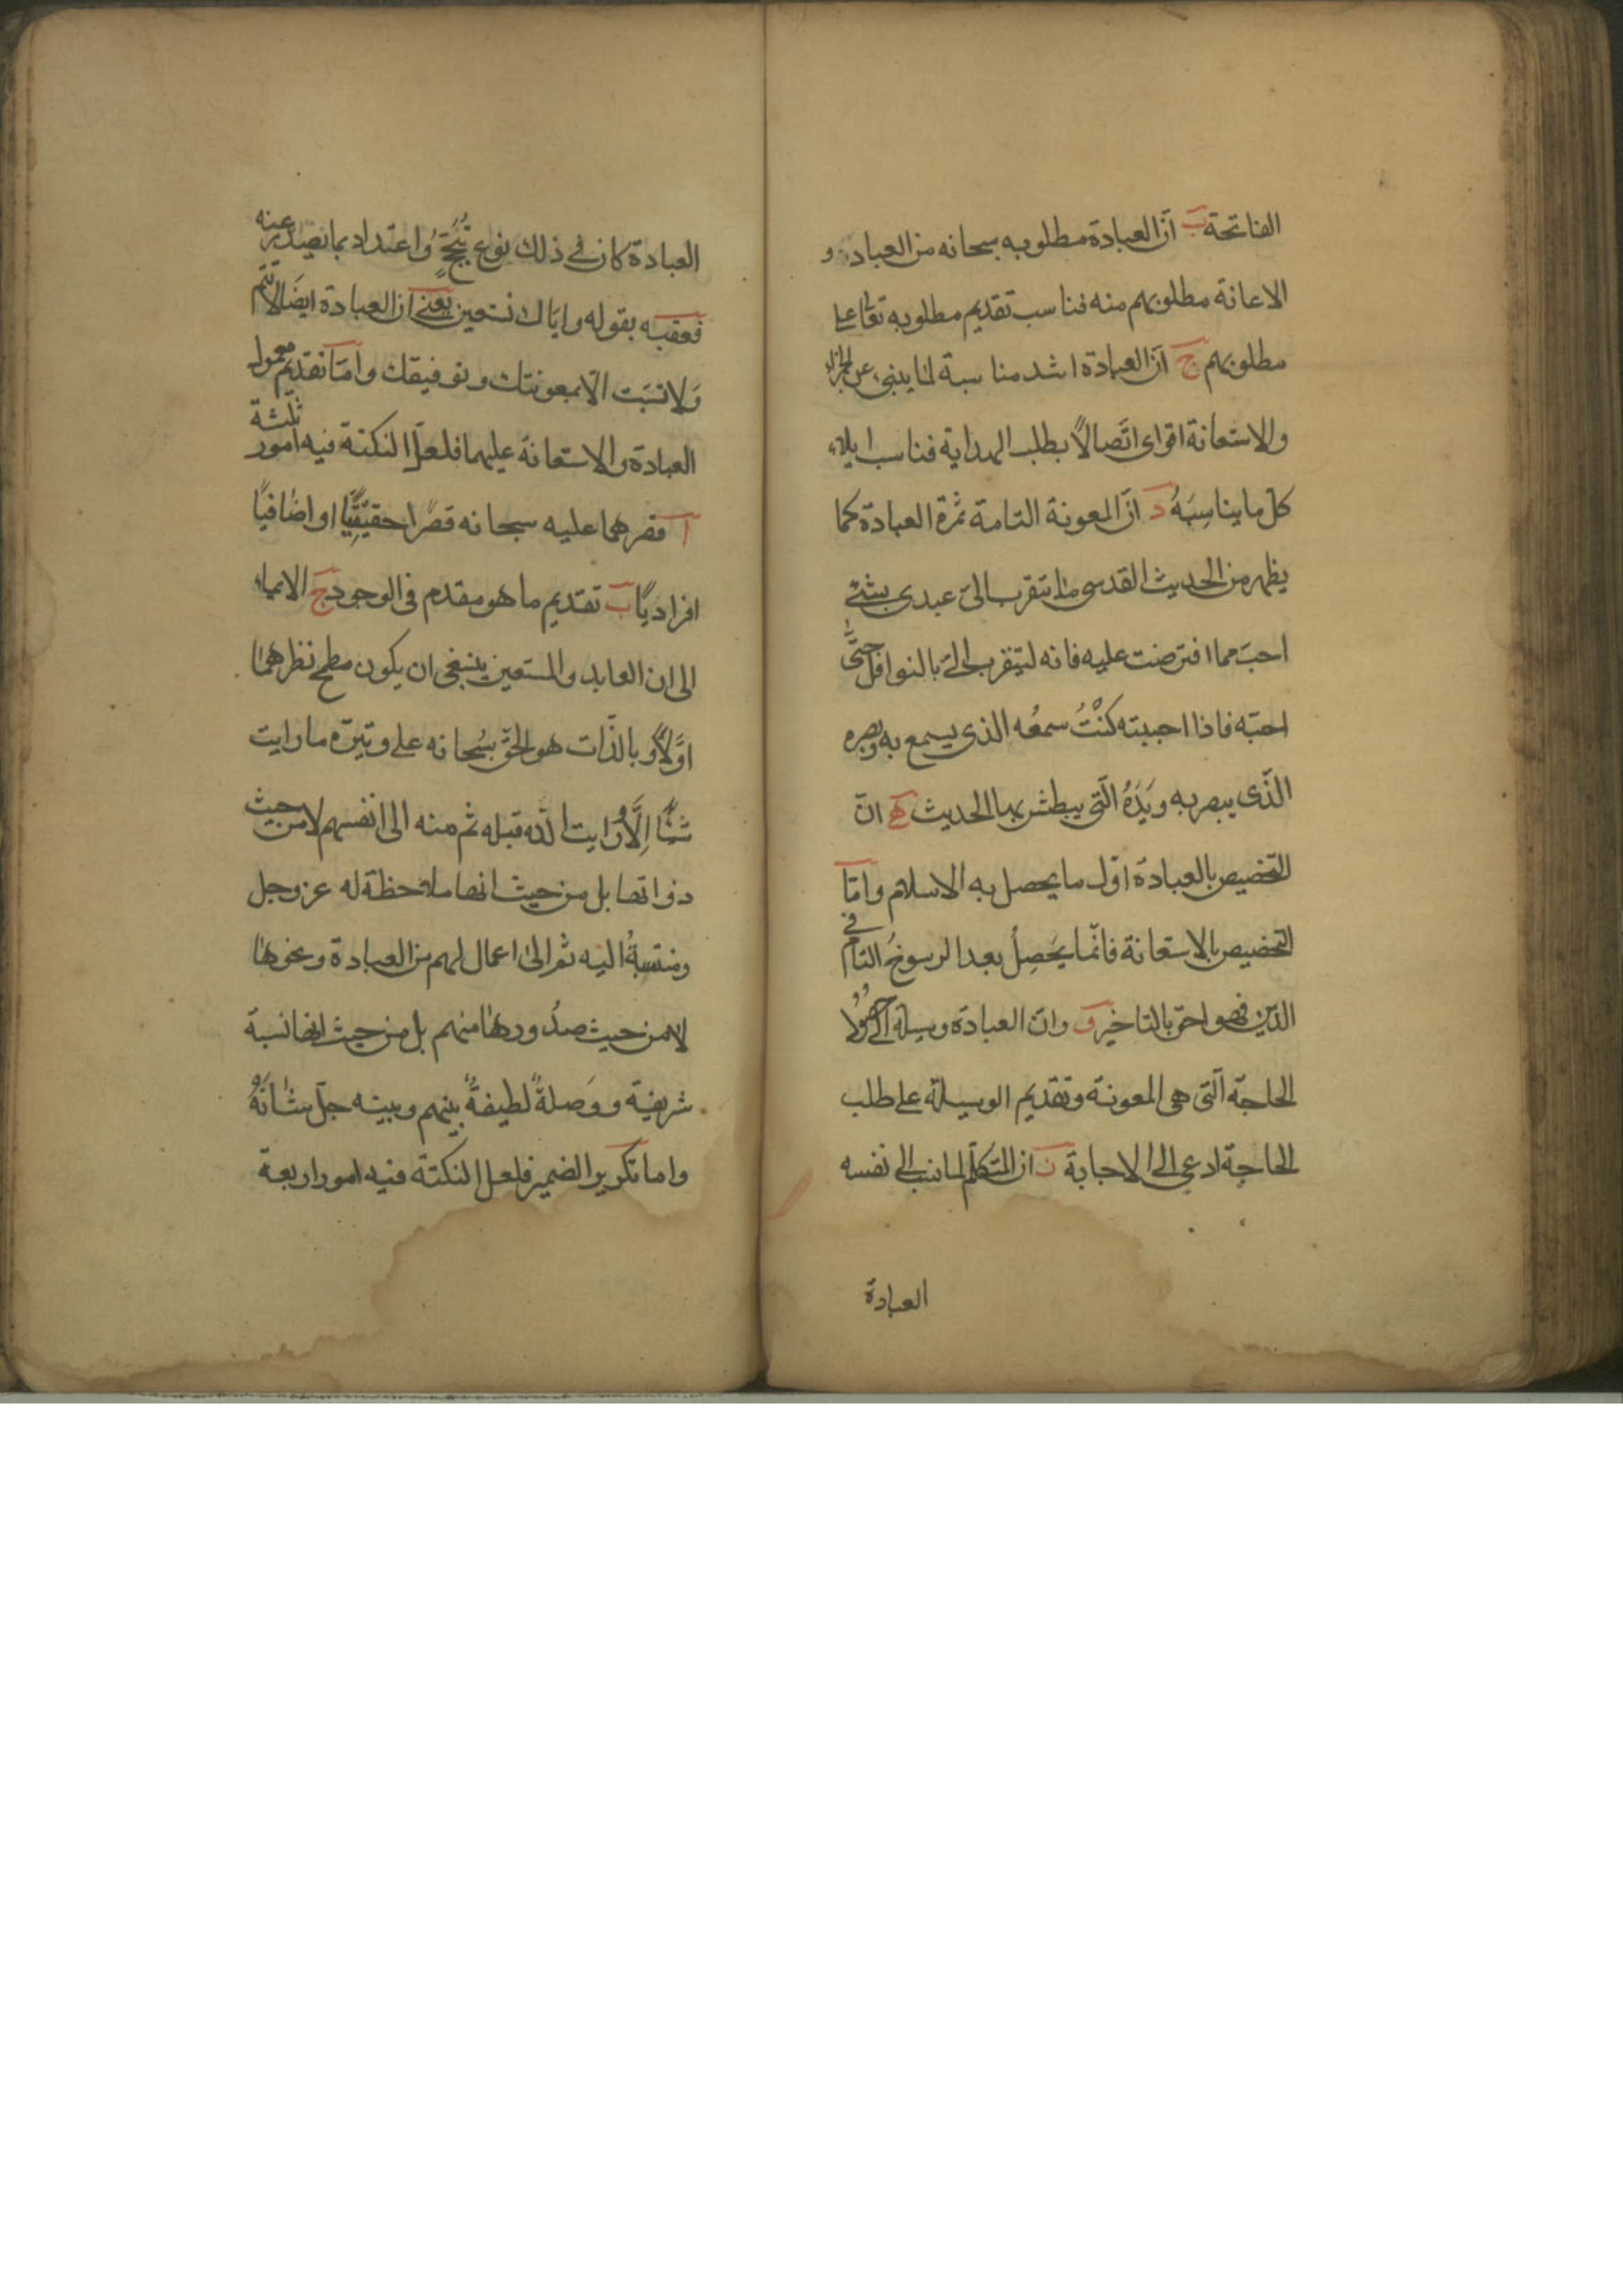 الفاتحة ب ان العبادة مطلوبه سبحانه من العباد و
الاعانة مطلوبهم منه فناسب تقديم مطلوبه تعالى على
مطلوبهم ج ان العبادة اشد مناسبة لما ينبئ عن الجزاء
والاستعانة اقوى اتصالاً بطلب الهداية فناسب ايلاء
كل ما يناسِبَهُ د ان المعونة التامة ثمرة العبادة كما
يظهر من الحديث القدسى ما تتقرب الىّ عبدى بشئ
احبّ مما افترضت عليه فانه ليتقرب الىّ بالنوافل حتّى
احبّه فاذا احببته كُنْتُ سمعُه الذى يسمع به وبصره
الّذى يبصر به ويَدَهُ الّتى يبطش بها الحديث ه انّ
التخصيص بالعبادة اوّل ما يحصل به الاسلام وامّا
التخصيص بالاستعانة فانّما يَحصِلُ بعد الرسوخُ التام فى
الدّين فهو احقّ بالتاخير و وانّ العبادة وسيلة الى حصول
الحاجة الّتى هى المعونة وتقديم الوسيلة على طلب
الحاجة ادعى الى الاجابة ز ان المتكلّم لما نسب الى نفسه
العبادة
العبادة كان فى ذلك نوع تبجّح واعتداد بما يصدر عنه
فعقبه بقوله واياك نستعين يعنى ان العبادة ايضاً لا تتم
ولا تستتب الا بمعونتك وتوفيقك وامّا تقديم معمول
العبادة والاستعانة عليهما فلعلّ النكتة فيه امور ثلثة
آ قصرهما عليه سبحانه قصرًا حقيقيًّا او اضافيًا
افراديًا ب تقديم ما هو مقدم فى الوجود ج الايماء
الى ان العابد والمستعين ينبغى ان يكون مطمح نظرهما
اوّلاً وبالذّات هو الحقّ سُبحانه على وتيرة ما رايت
شيئًا اِلّا ورايت الله قبله ثم منه الى انفسهم لا من حيث
ذواتها بل من حيث انها ملاحظة له عز وجل
ومنتسبةُ اليه ثم الى اعمال لهم من العبادة ونحوها
لا من حيث صدُورها منهم بل من حيث انها نسبة
شريفة ووَصلةً لطيفةً بينهم وبينه جلّ شانَهُ
واما تكرير الضمير فلعل النكتة فيه امور اربعة